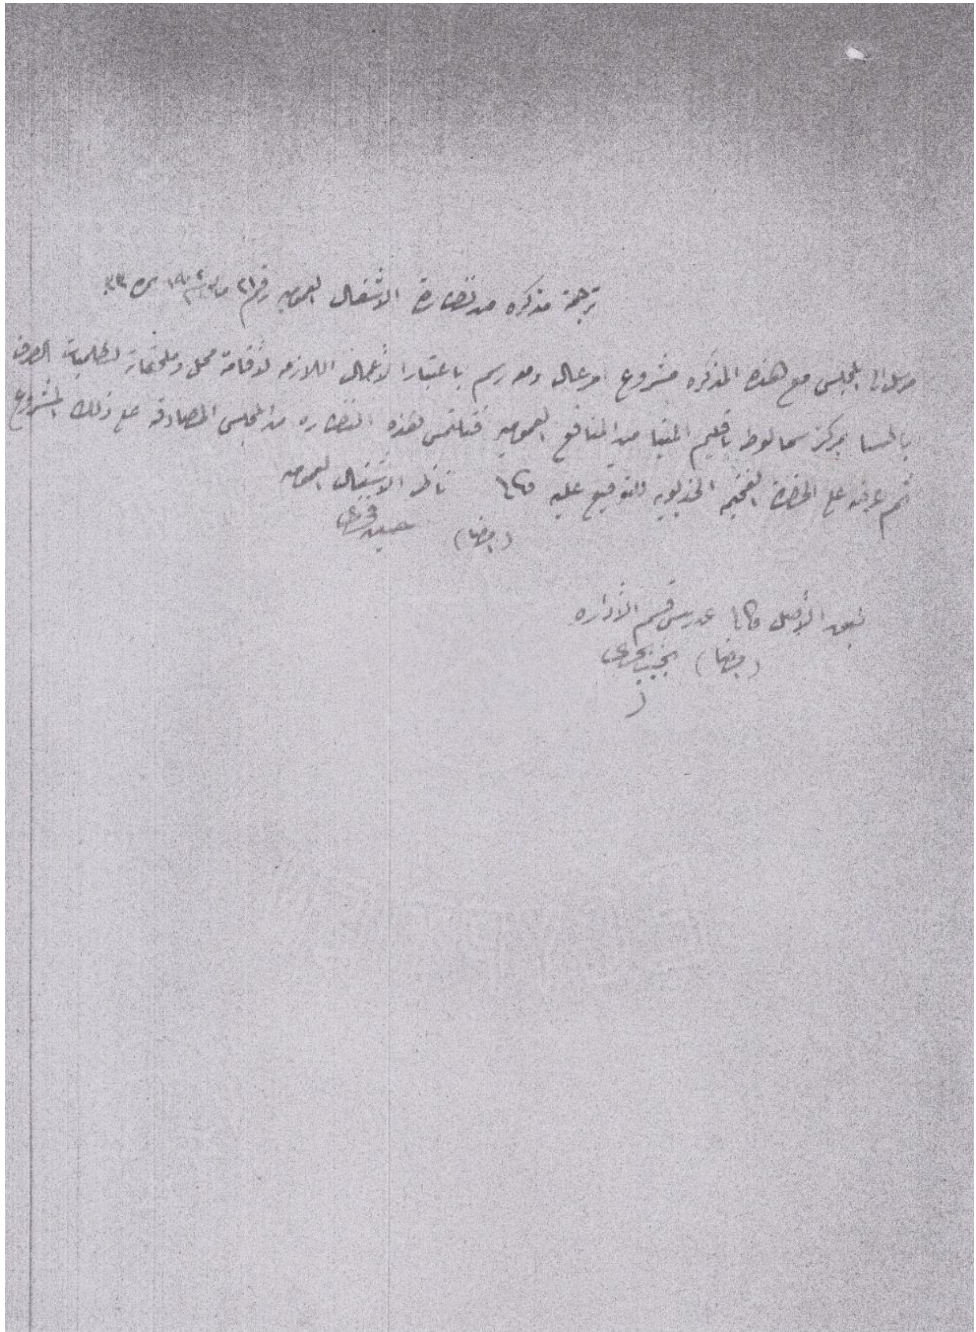 ترجمة مذكره من نظارة الاشغال العموميه رقم ٢١ مايو سنة ١٩٠٢ نمره
مرسل الى المجلس مع هذه المذكره مشروع امر عال ومعه رسم باعتبار الأعمال اللازمه لاقامة محل وملحقاته لطلمبات الصرف
بالحسا بمركز سمالوط باقليم المنيا من المنافع العموميه فتلتمس هذه النظاره من المجلس المصادقه على ذلك المشروع
ثم عرضه على الحضرة الفخيمه الخديويه للتوقيع عليه ناظر الاشغال العموميه
(امضا) حسين فخرى
طبق الأصل عن رئيس قسم الاداره
(امضا)